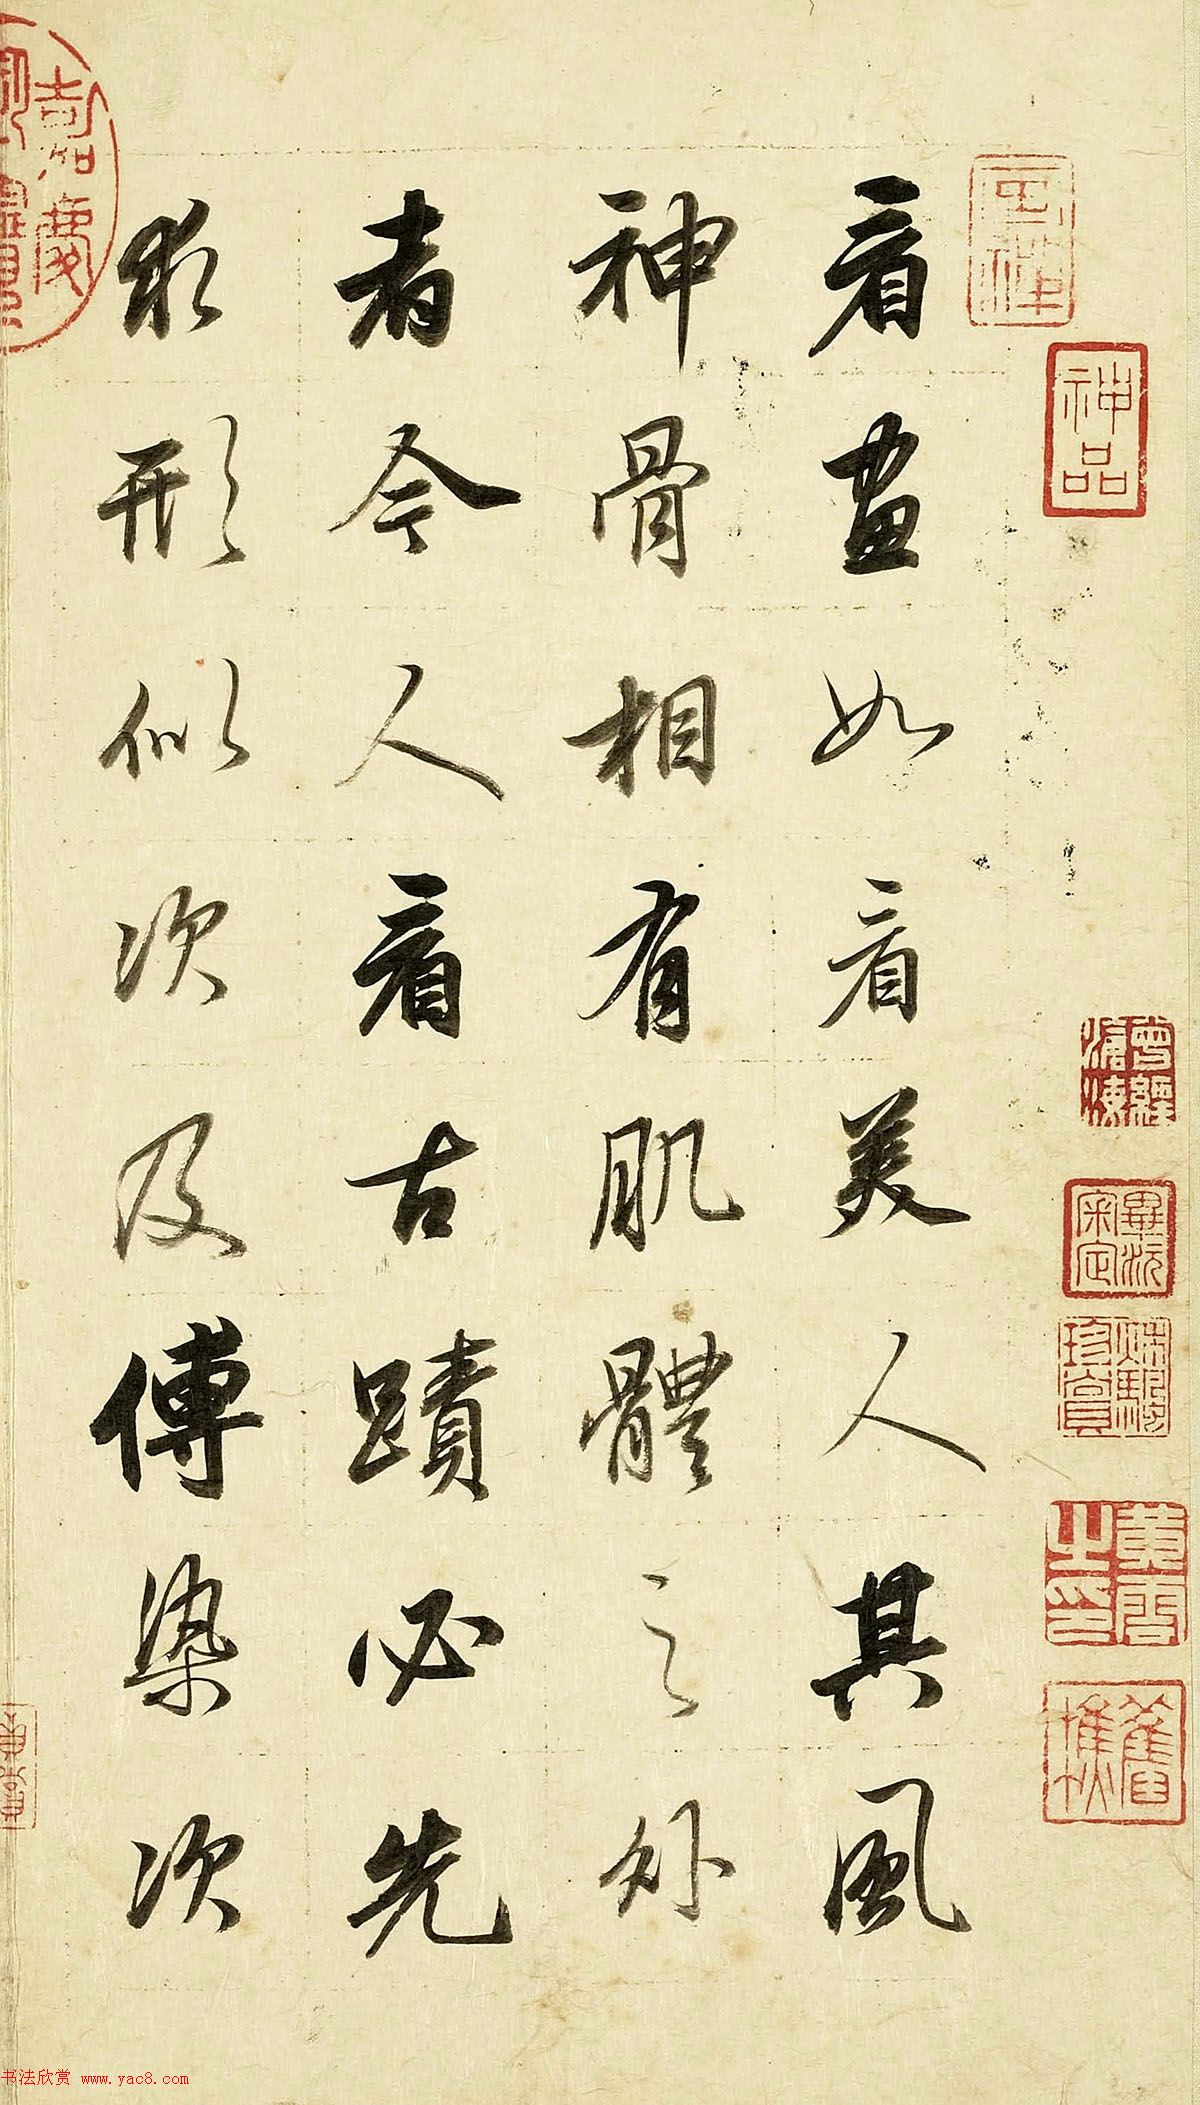 看畫如看美人其風
神骨相有肌體之外
者今人看古蹟必先
求形似次及傅染次
神品
嘉慶
書法欣赏 www.yac8.com